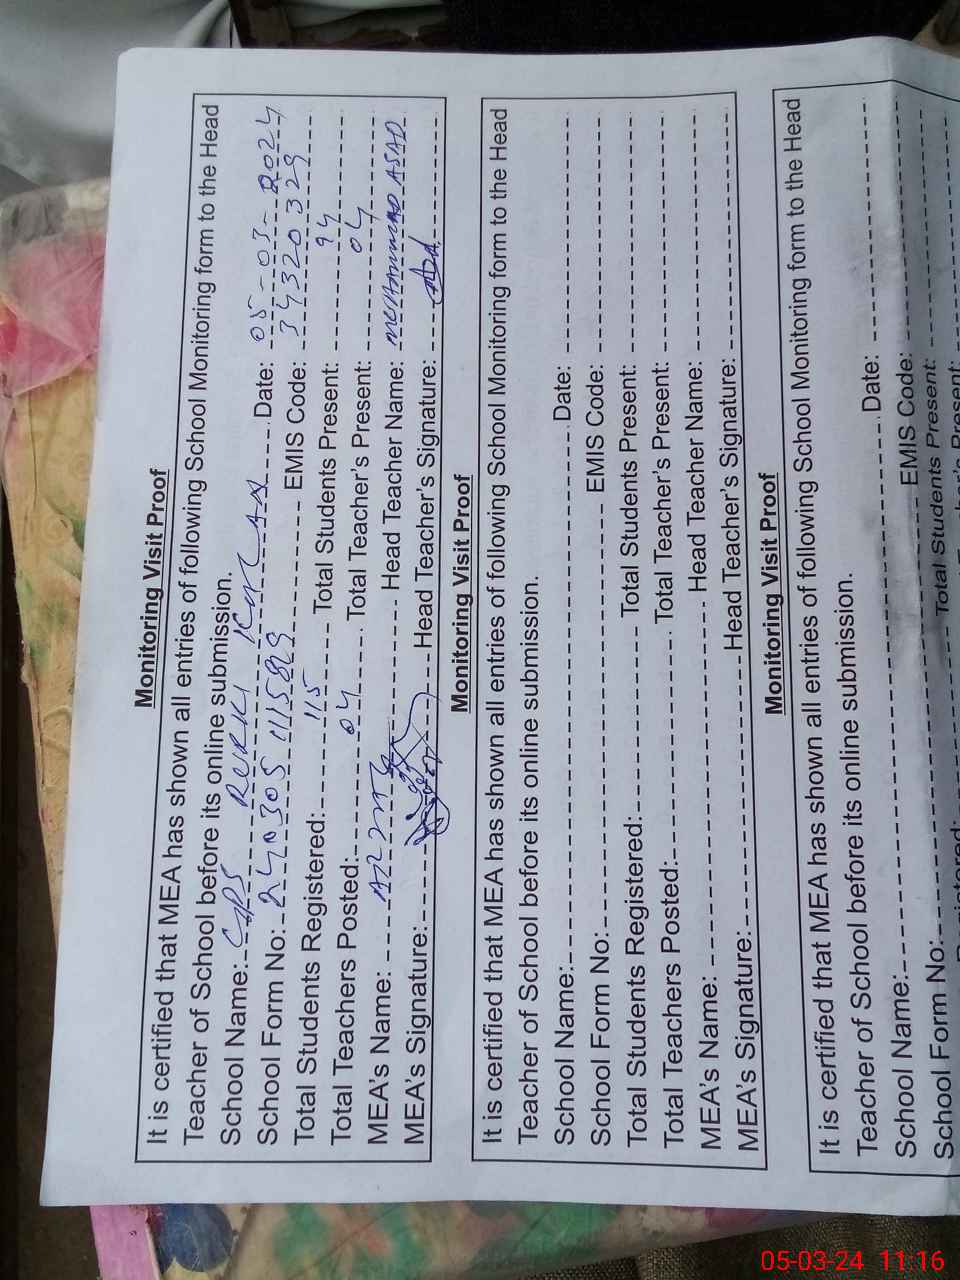 Monitoring Visit Proof
It is certified that MEA has shown all entries of following School Monitoring form to the Head
Teacher of School before its online submission.
School Name: Date: 05-03-2024
School Form No: EMIS Code: 34320329
Total Students Registered: 115 Total Students Present: 94
Total Teachers Posted: 04 Total Teacher's Present: 04
MEA's Name: Head Teacher Name: MUHAMMAD ASAD
MEA's Signature: Head Teacher's Signature:
Monitoring Visit Proof
It is certified that MEA has shown all entries of following School Monitoring form to the Head
Teacher of School before its online submission.
School Name: Date:
School Form No: EMIS Code:
Total Students Registered: Total Students Present:
Total Teachers Posted: Total Teacher's Present:
MEA's Name: Head Teacher Name:
MEA's Signature: Head Teacher's Signature:
Monitoring Visit Proof
It is certified that MEA has shown all entries of following School Monitoring form to the Head
Teacher of School before its online submission.
School Name: Date:
School Form No: EMIS Code:
Total Students Present:
05-03-24 11:16